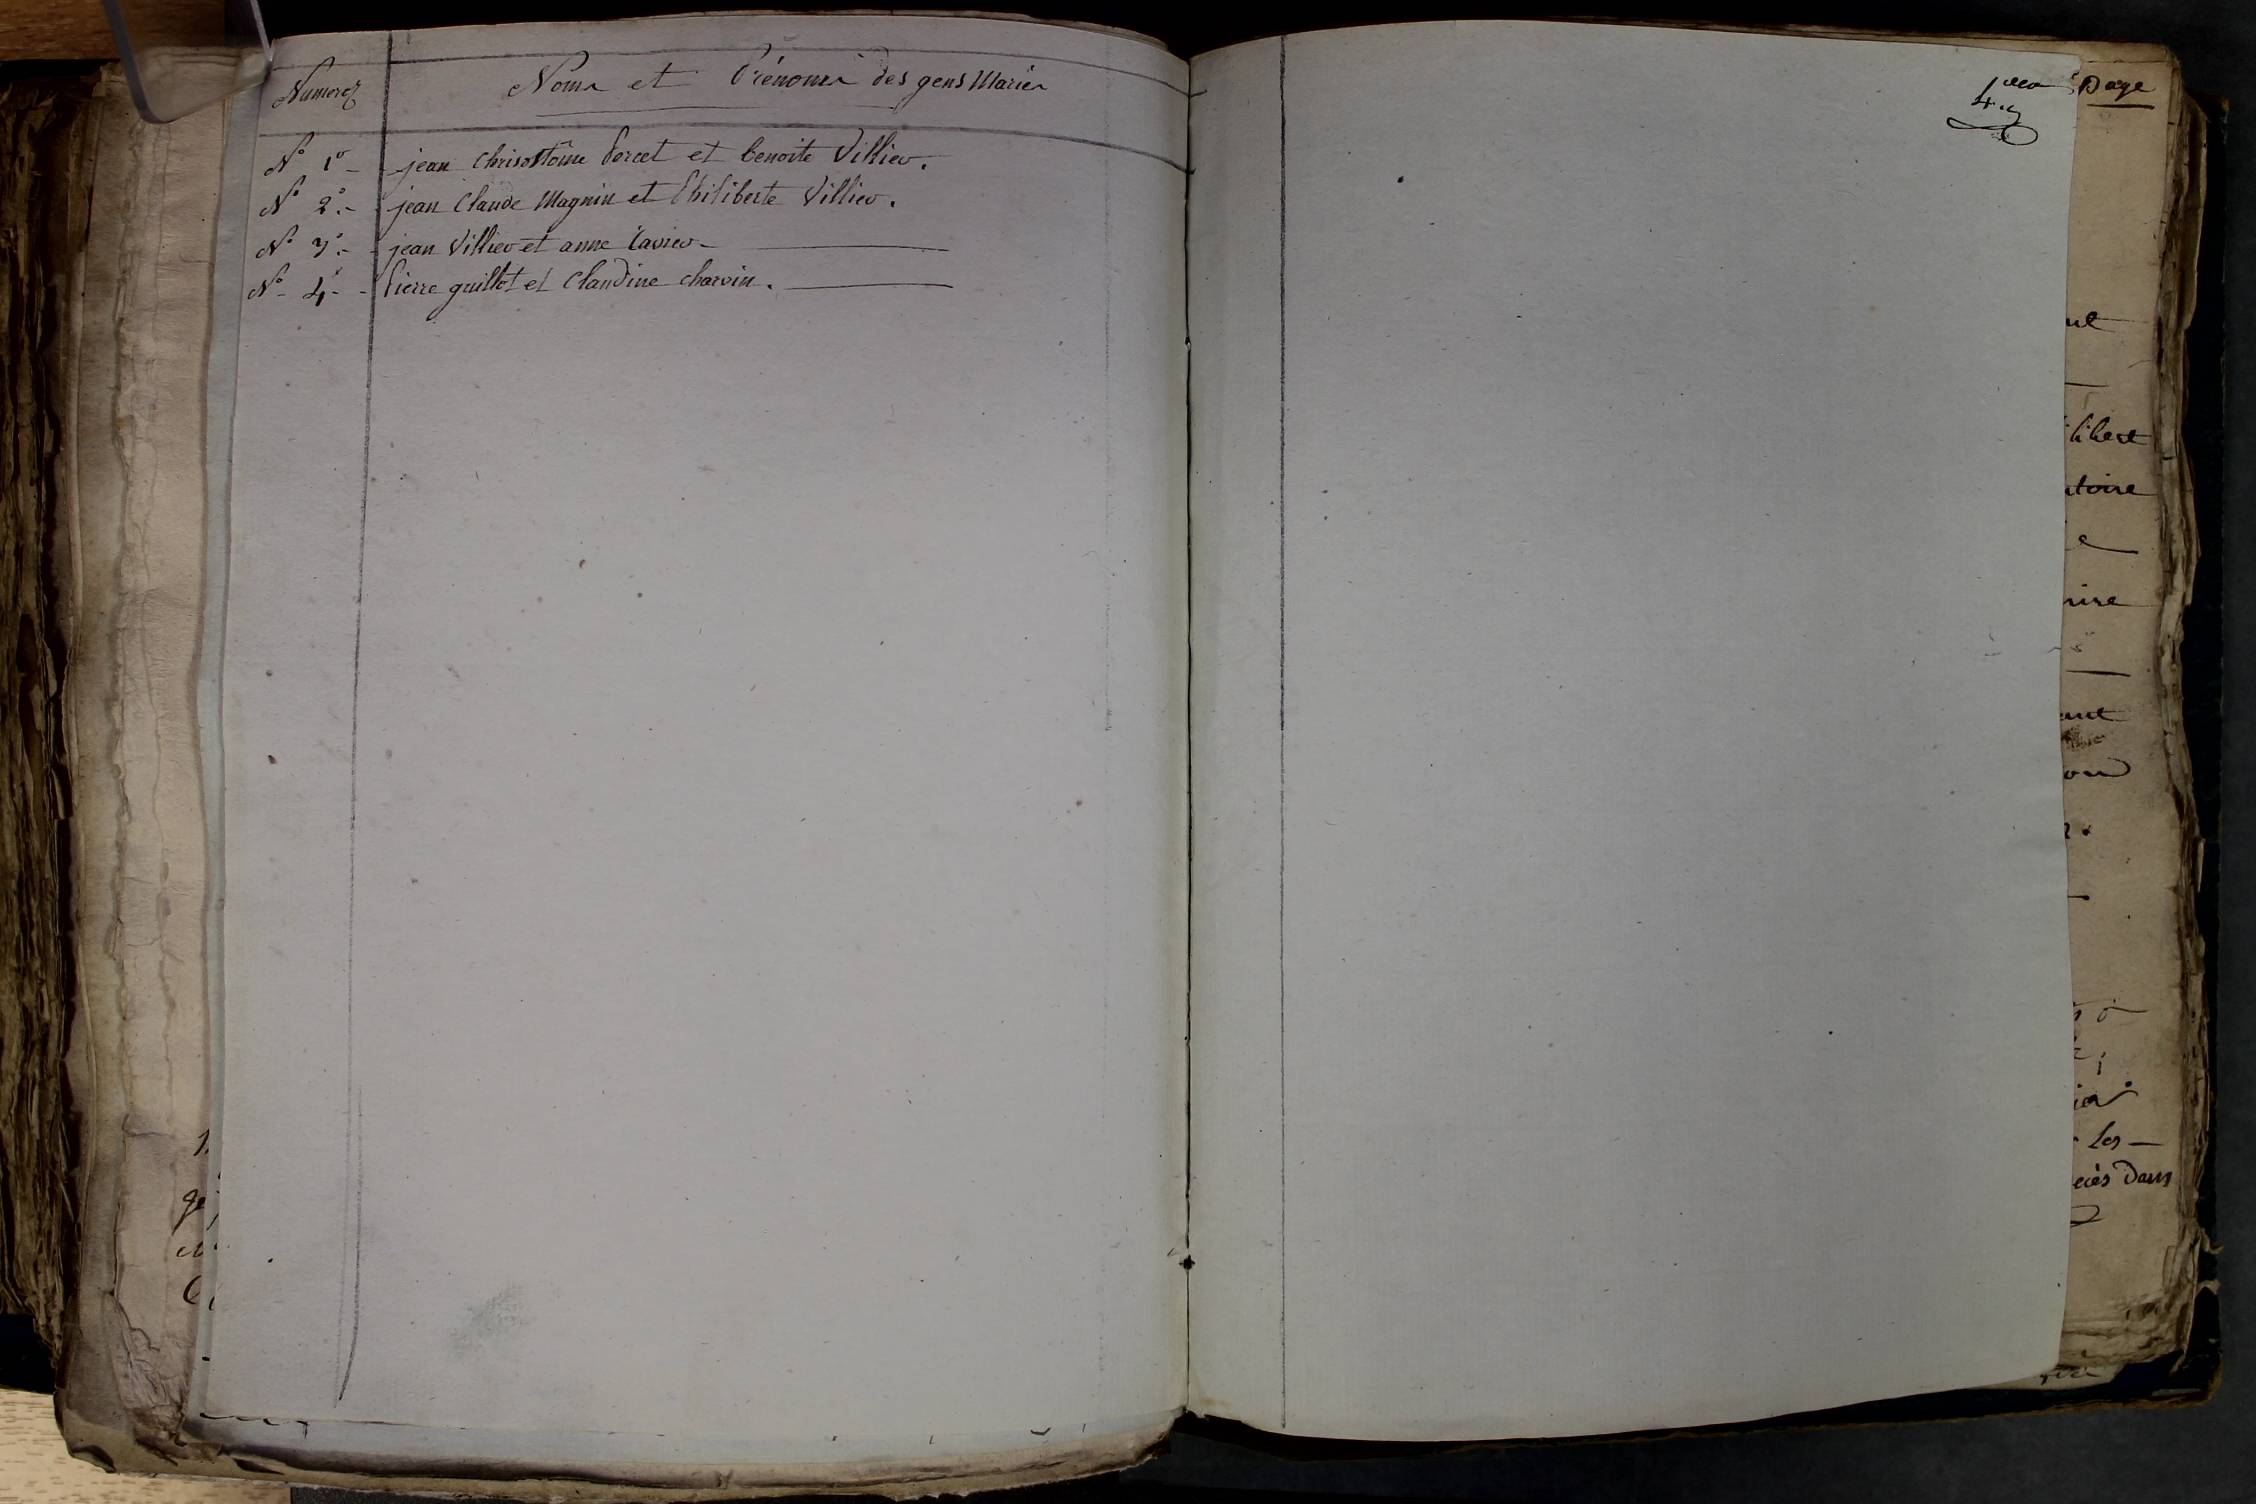 Numeroz
Noms et Prénoms des gens Mariés
N° 1° jean Chrisostôme Porcet et benoite Villier.
N° 2° jean Claude Magnin et Philiberte Villier.
N° 3° jean Villier et anne
N° 4 Pierre guillot et Claudine charvin.
4
Page
libert
toire
les
dans